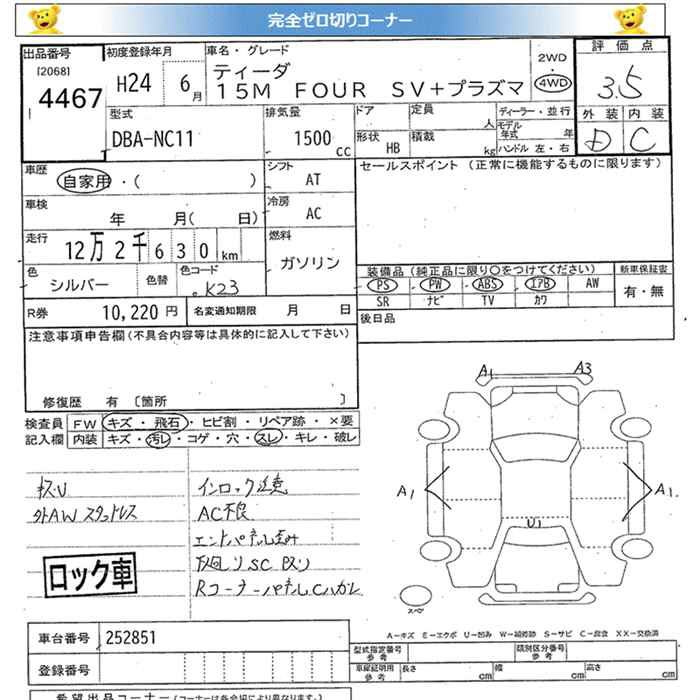 完全ゼロ切りコーナー
出品番号 初度登録年月 車名・グレード 2WD 評価点
[2068] H24 6月 ティーダ 4WD 3.5
4467 15M FOUR SV+プラズマ
型式 排気量 ドア 定員 人 ディーラー・並行 外装 内装
DBA-NC11 1500 CC 形状 HB 積載 kg モデル年式 年 D C
ハンドル 左・右
車歴 シフト セールスポイント (正常に機能するものに限ります)
自家用・( ) AT
車検 冷房
年 月( 日) AC
走行 燃料
12万2千630km ガソリン
色 色替 色コード 装備品 (純正品に限り○をつけてください) 新車保証書
シルバー K23 PS PW ABS エアB AW 有・無
SR ナビ TV カワ
R券 10,220円 名変通知期限 月 日 後日品
注意事項申告欄(不具合内容等は具体的に記入して下さい)
修復歴 有 〔箇所 〕
検査員 FW キズ・飛石・ヒビ割・リペア跡・×要
記入欄 内装 キズ・汚レ・コゲ・穴・スレ・キレ・破レ
A1 A3
A1 A1
U1
スペ
キズ・U インロック注意
外AWスタッドレス AC不良
エンドパネル歪み
下廻りSC 因り
RコーナーパネルCハガレ
ロック車
車台番号 252851
登録番号
A-キズ E-エクボ U-凹み W-補修跡 S-サビ C-腐食 XX-交換済
型式指定番号 参考 類別区分番号 参考
車庫証明用 参考 長さ cm 幅 cm 高さ cm
希望出品コーナー(コーナーは各会場により異なります)